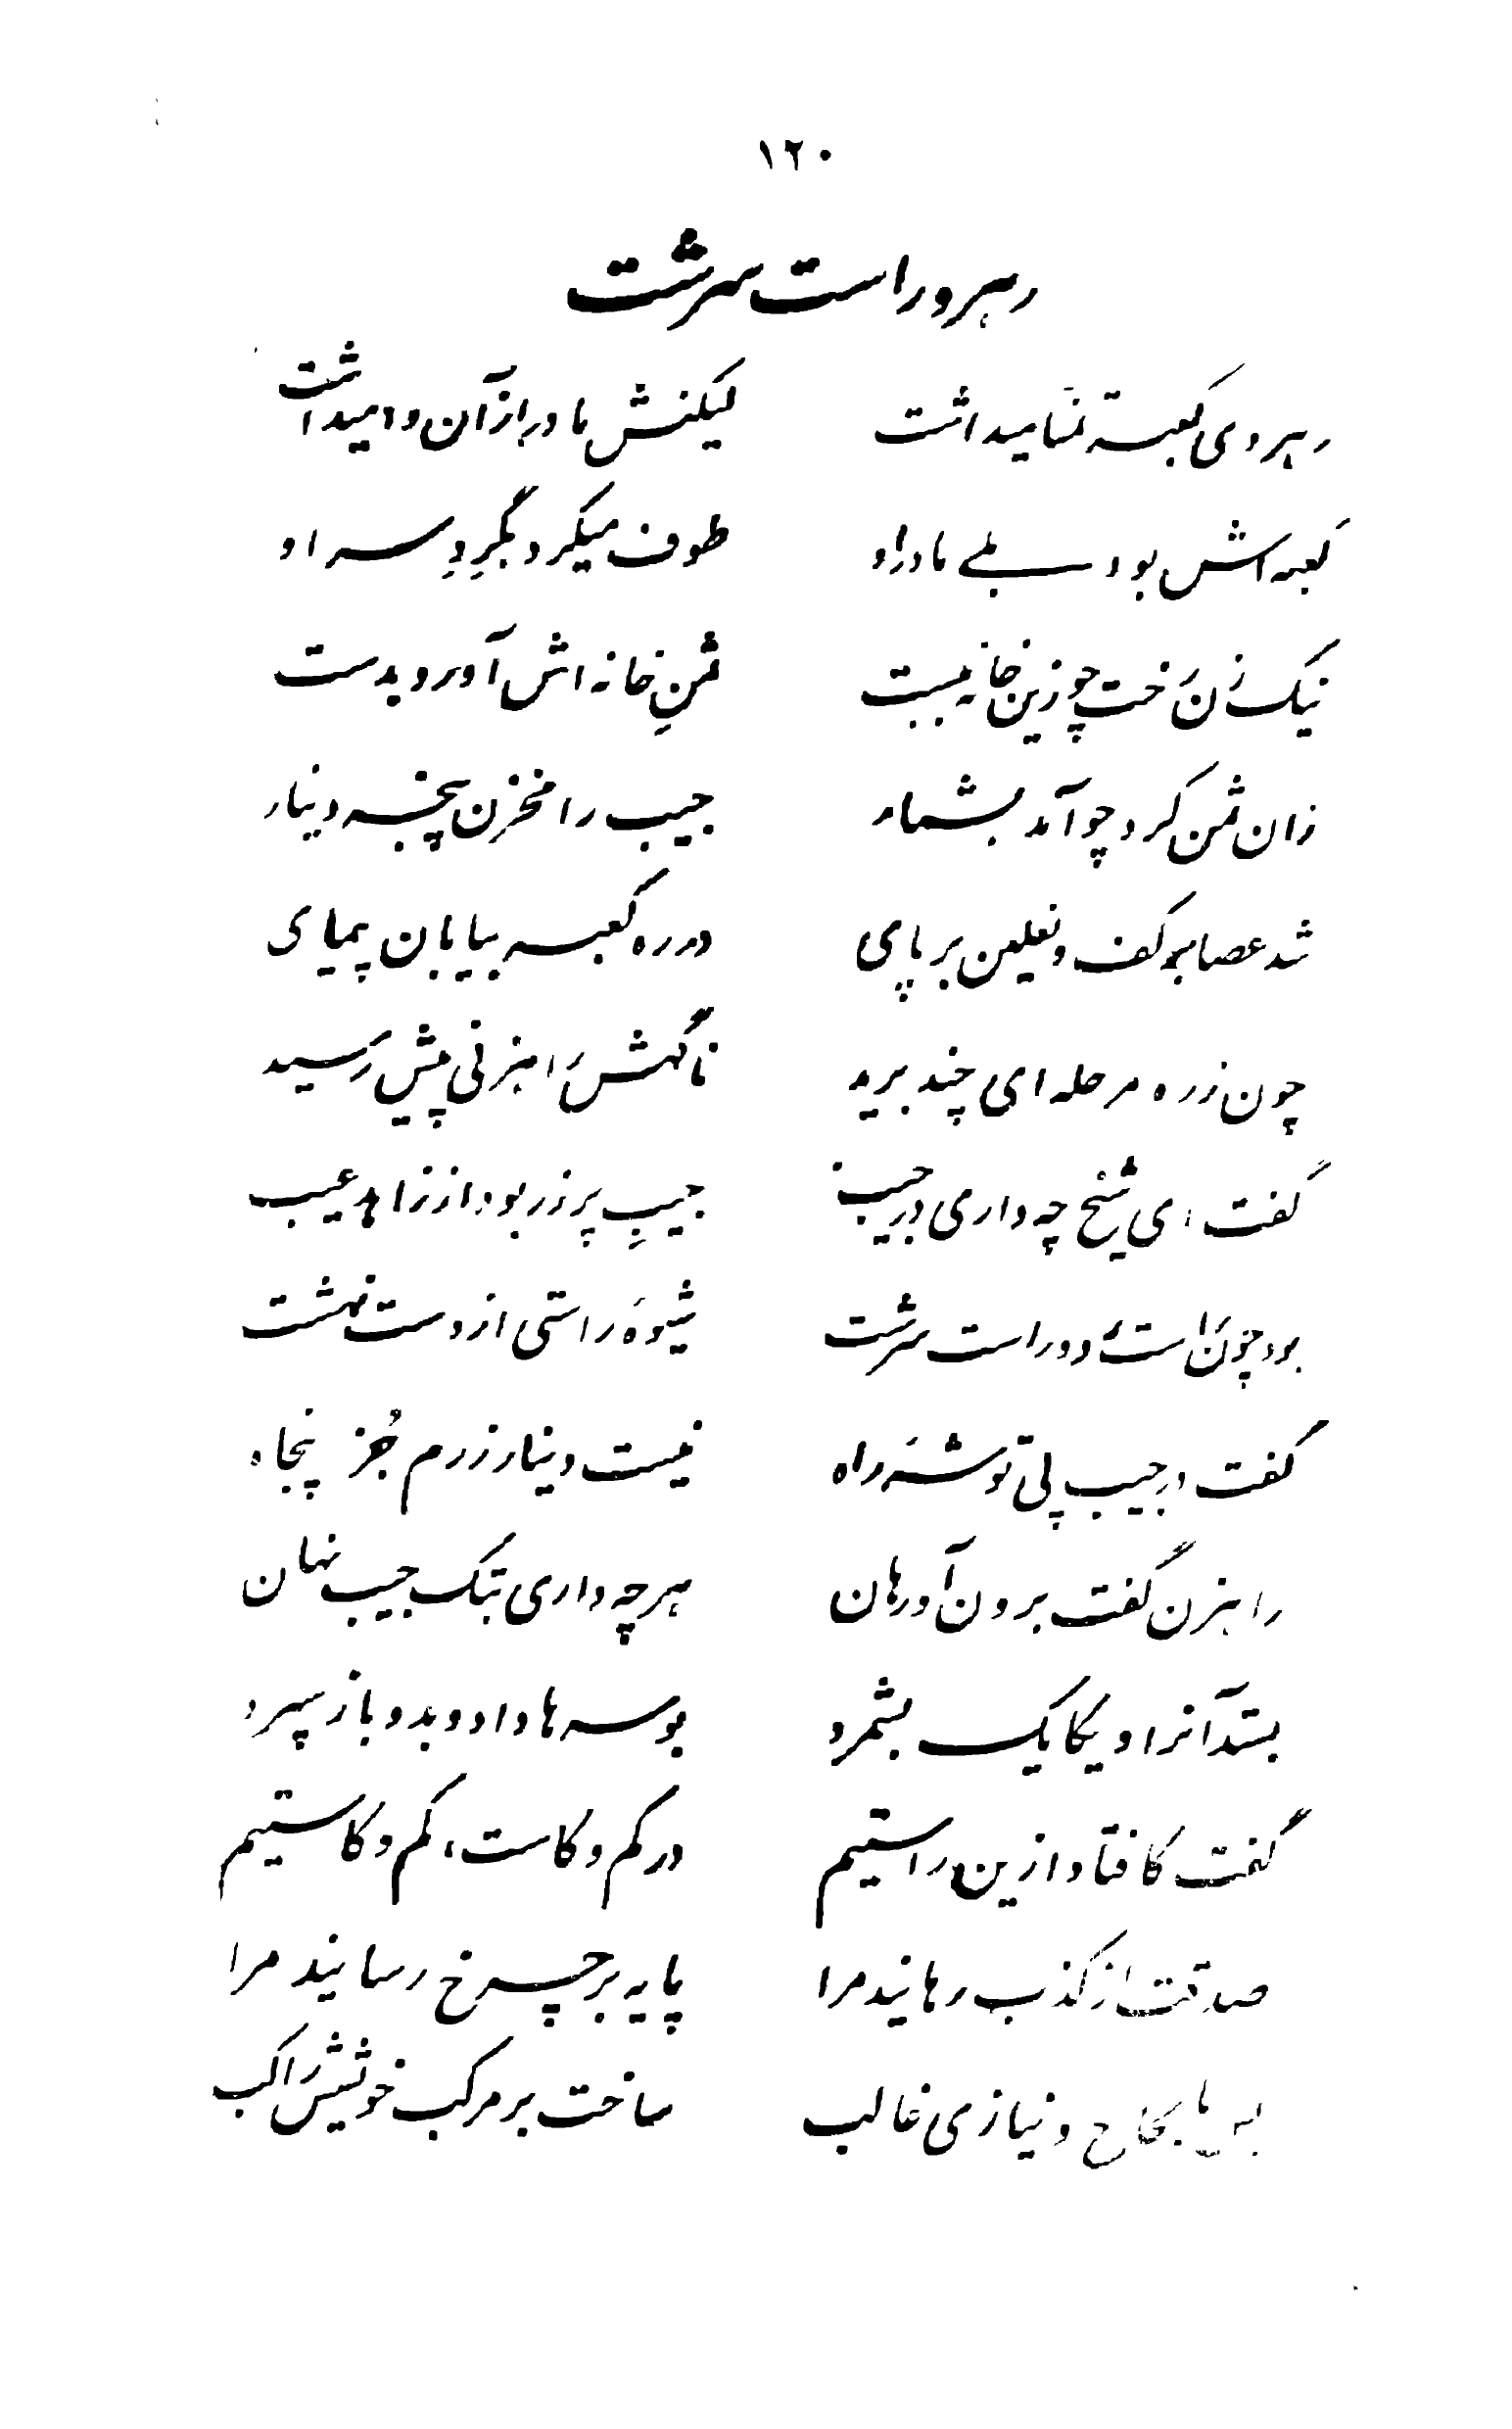 ۱۲۰
رهرو راست سرشت
رهروی کعبه تمنا میداشت لیکنش مادر از آن وا میداشت
کعبه اش بود بلی مادر او طوف میکرد بگردِ سر او
نیک زن رخت چو زین خانه ببست ثمنِ خانه اش آورد بدست
زان ثمن کرد چو آمد بشمار جیب را مخزن پنجه دینار
شد عصا بر کف و نعلین بر پای در ره کعبه بیابان پیمای
چون ز ره مرحله ای چند برید ناگهش راهزنی پیش رسید
گفت ای شیخ چه داری در جیب جیبِ پر زر بود از زاهد عیب
بود چون راست رو و راست سرشت شیوهٔ راستی از دست نهشت
گفت در جیب پی توشهٔ راه نیست دینار زرم جُز پنجاه
راهزن گفت برون آور هان هر چه داری بتک جیب نهان
بستد آنرا و یکایک بشمرد بوسه ها داد و بدو باز سپرد
گفت کافتاد ازین راستیم در کم و کاست، کم و کاستیم
صدقت از کذب رهانید مرا پایه بر چرخ رسانید مرا
و نیازی غالب ساخت بر مرکب خویشش راکب